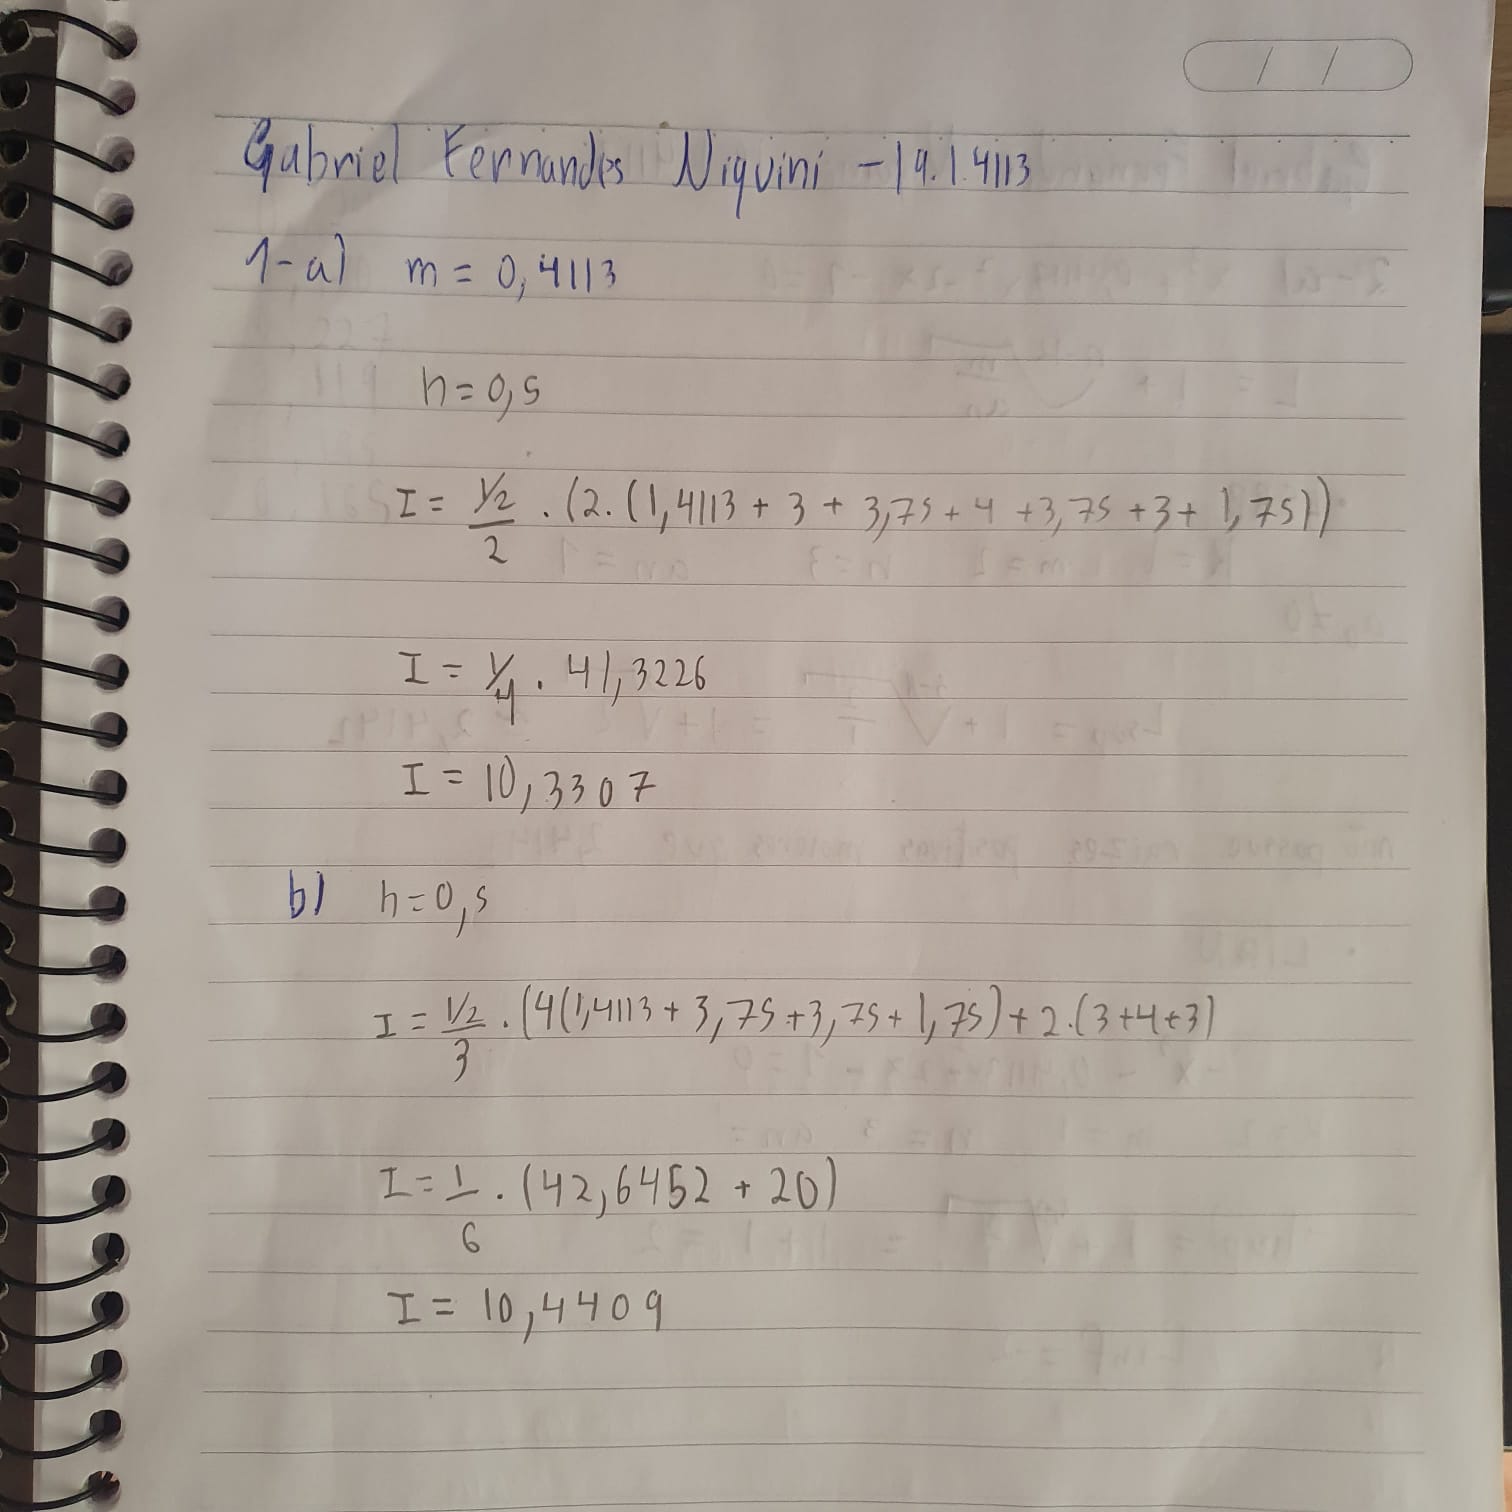 / /
Gabriel Fernandes Niquini - 19.1.4113
1-a) m = 0,4113
h = 0,5
I = ½/2 . (2.(1,4113 + 3 + 3,75 + 4 + 3,75 + 3 + 1,75))
I = 1/4 . 41,3226
I = 10,3307
b) h = 0,5
I = ½/3 . (4(1,4113 + 3,75 + 3,75 + 1,75) + 2.(3+4+3)
I = 1/6 . (42,6452 + 20)
I = 10,4409